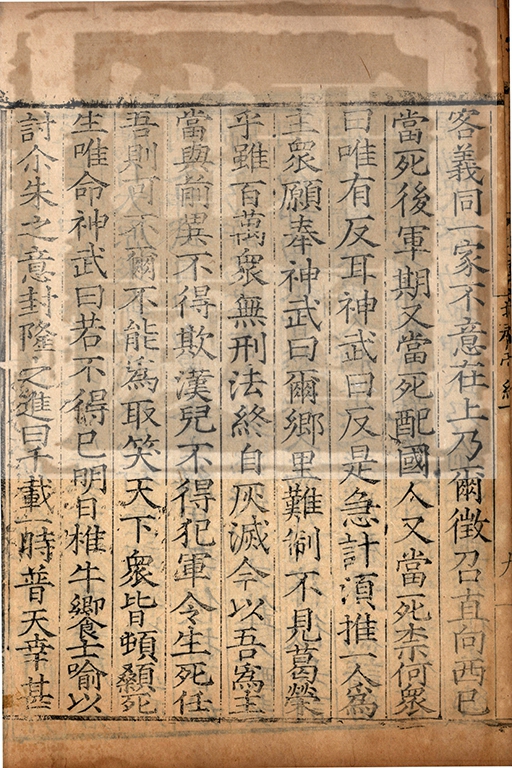 客義同一家不意在上乃爾徵召直向西已
當死後軍期又當死配國人又當死柰何衆
曰唯有反耳神武曰反是急計須推一人爲
主衆願奉神武曰爾鄉里難制不見葛榮
乎雖百萬衆無刑法終自灰滅今以吾爲主
當與前異不得欺漢兒不得犯軍令生死任
吾則可不爾不能爲取笑天下衆皆頓顙死
生唯命神武曰若不得已明日椎牛饗士喻以
討尒朱之意封隆之進曰千載一時普天幸甚